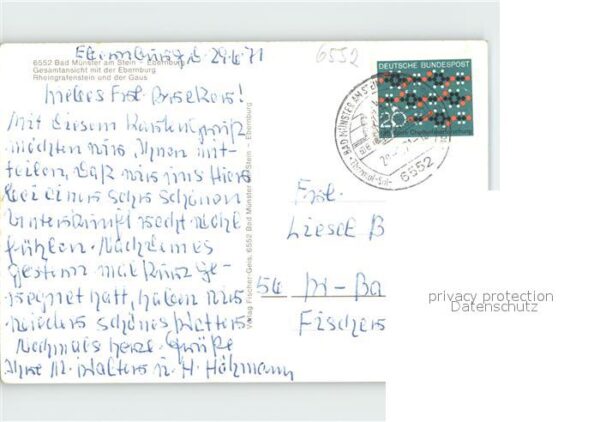 Ebernburg, d. 29.6.71
6552
6552 Bad Münster am Stein - Ebernburg
Gesamtansicht mit der Ebernburg
Rheingrafenstein und der Gans
DEUTSCHE BUNDESPOST
20
125 Jahre Chemiefaserforschung
BAD MÜNSTER AM STEIN
6552
Liebes Frl.
Mit diesem Kartengruß
möchten wir Ihnen mit-
teilen, daß wir uns hier
bei einer sehr schönen
Unterkunft recht wohl
fühlen. Nachdem es
gestern mal kurz ge-
regnet hatt, haben wir
wieder schönes Wetter.
Nochmals herzl. Grüße
Ihre M. Walter u. H. Hohmann
Verlag Fischer-Geis, 6552 Bad Münster am Stein - Ebernburg
Frl.
Liesel B
56 W-Ba
Fischer
privacy protection
Datenschutz